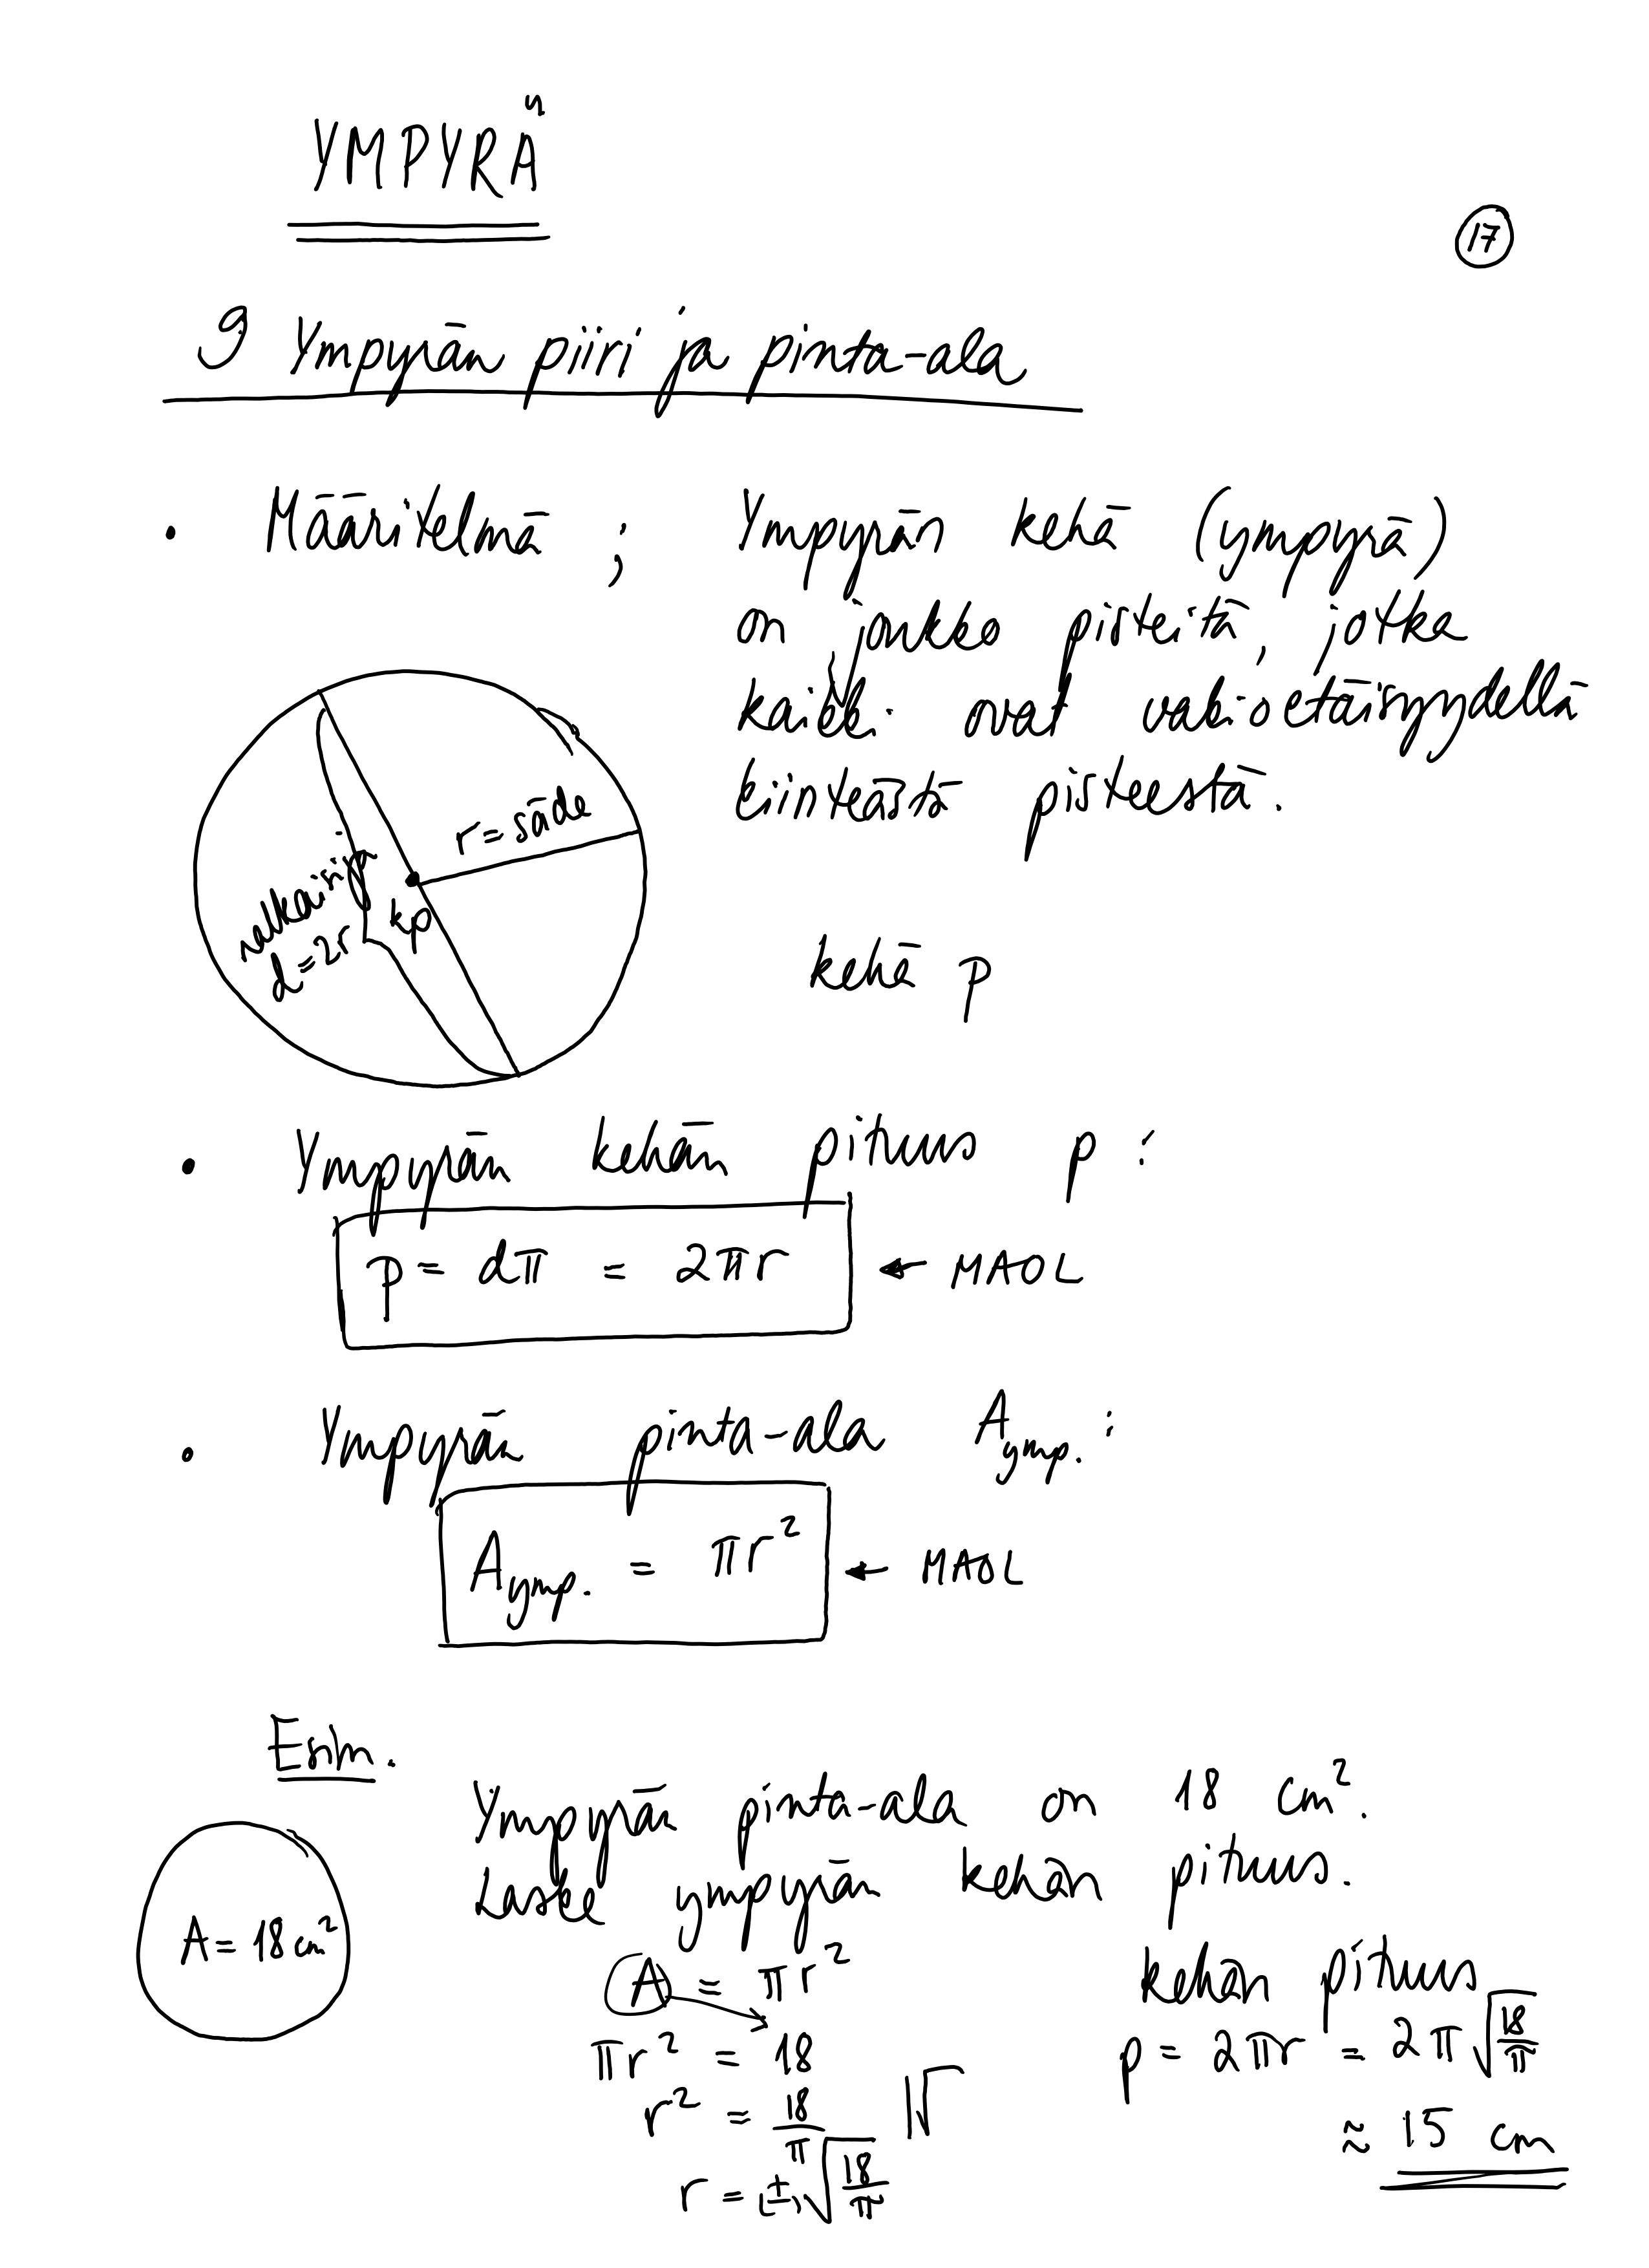 YMPYRÄ
17
9 Ympyrän piiri ja pinta-ala
• Määritelmä ; Ympyrän kehä (ympyrä)
on joukko pisteitä, jotka
kaikki ovat vakioetäisyydellä
kiinteästä pisteestä.
r = säde
halkaisija
d = 2r
kp
kehä p
• Ympyrän kehän pituus p :
p = dπ = 2πr ← MAOL
• Ympyrän pinta-ala Aymp. :
Aymp. = πr² ← MAOL
Esim.
Ympyrän pinta-ala on 18 cm².
Laske ympyrän kehän pituus.
A = 18 cm²
A = πr²
πr² = 18
r² = 18/π |√
r = (±)√(18/π)
Kehän pituus
p = 2πr = 2π√(18/π)
≈ 15 cm